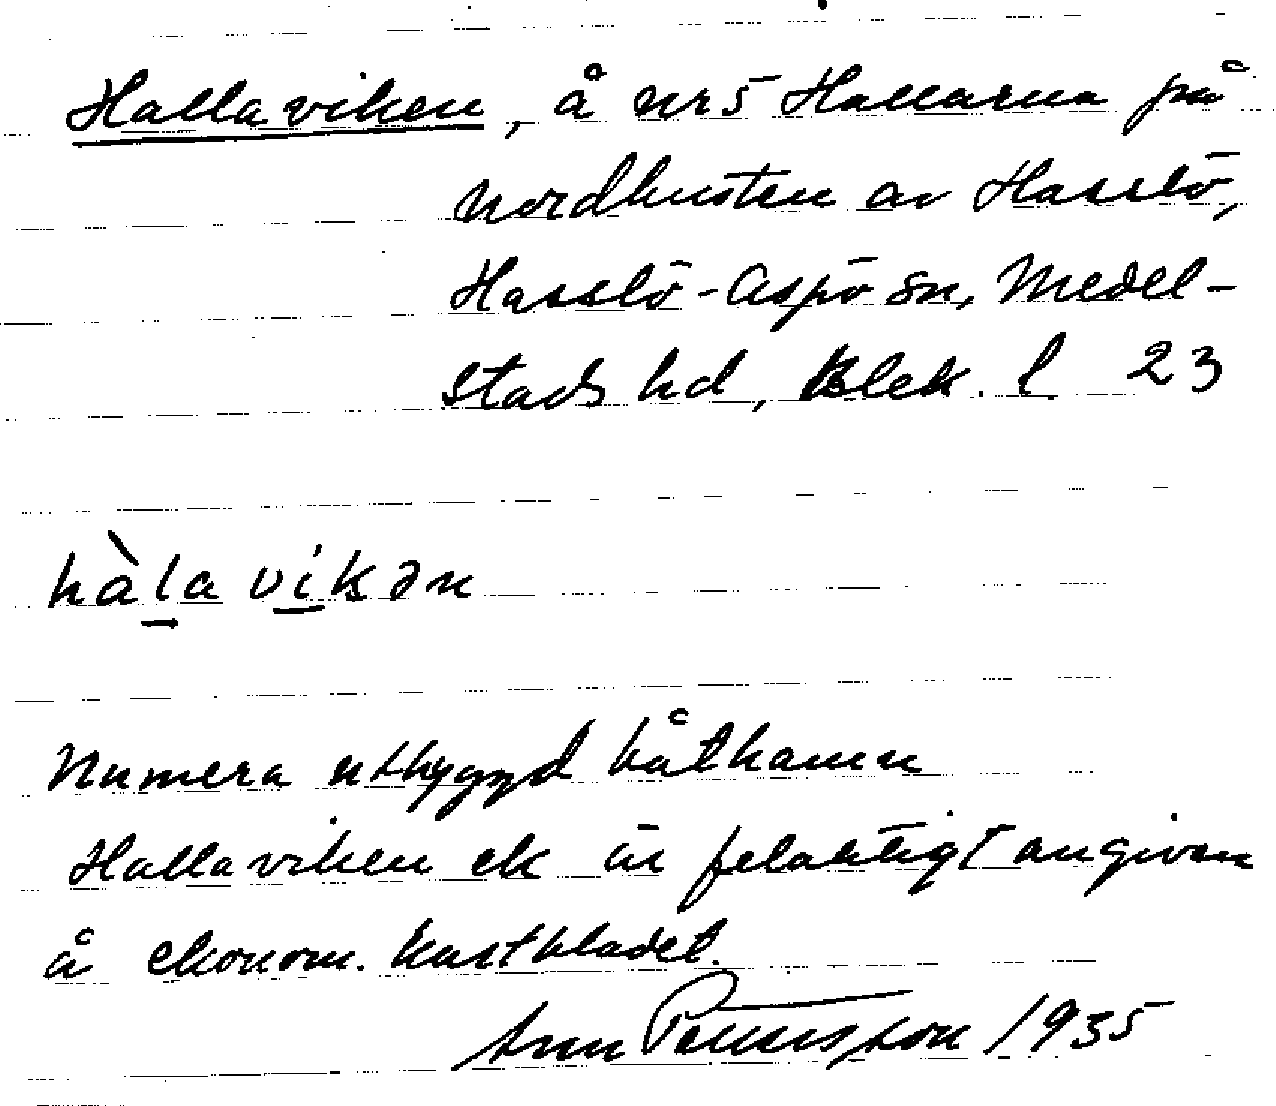 Hallaviken, å nr 5 Hallarna på
nordkusten av Hasslö,
Hasslö-Aspö sn, Medel-
stads hd, Blek. l 23
hàla víkən
Numera utbyggd båthamn
Hallaviken ek är felaktigt angiven
å ekonom. kartbladet.
Pettersson 1935